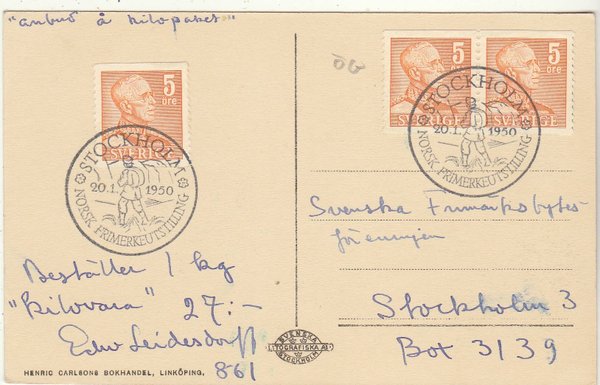 "anbud å kilopaket"
ÖG
5
öre
SVERIGE
5
öre
5
öre
SVERIGE
STOCKHOLM
20.1. 1950
NORSK FRIMERKEUTSTILLING
STOCKHOLM
20.1. 1950
NORSK FRIMERKEUTSTILLING
Svenska Frimärksbytes-
föreningen
Stockholm 3
Box 3139
Beställer 1 kg
"kilovara" 27:-
Edw Leidesdorff
861
SVENSKA
LITOGRAFISKA AB
STOCKHOLM
HENRIC CARLSONS BOKHANDEL, LINKÖPING.